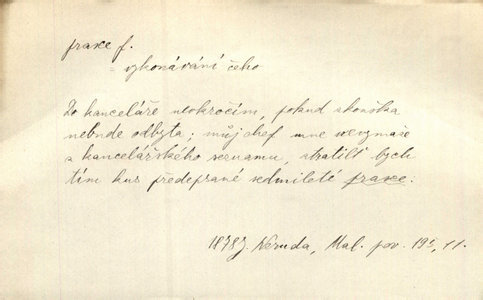 praxe f.
= vykonávání čeho
Do kanceláře nevkročím, pokud zkouška
nebude odbyta; můj chef mne nevymaže
z kancelářského seznamu, ztratilť bych
tím kus předepsané sedmileté praxe.
1878 J. Neruda, Mal. pov. 19